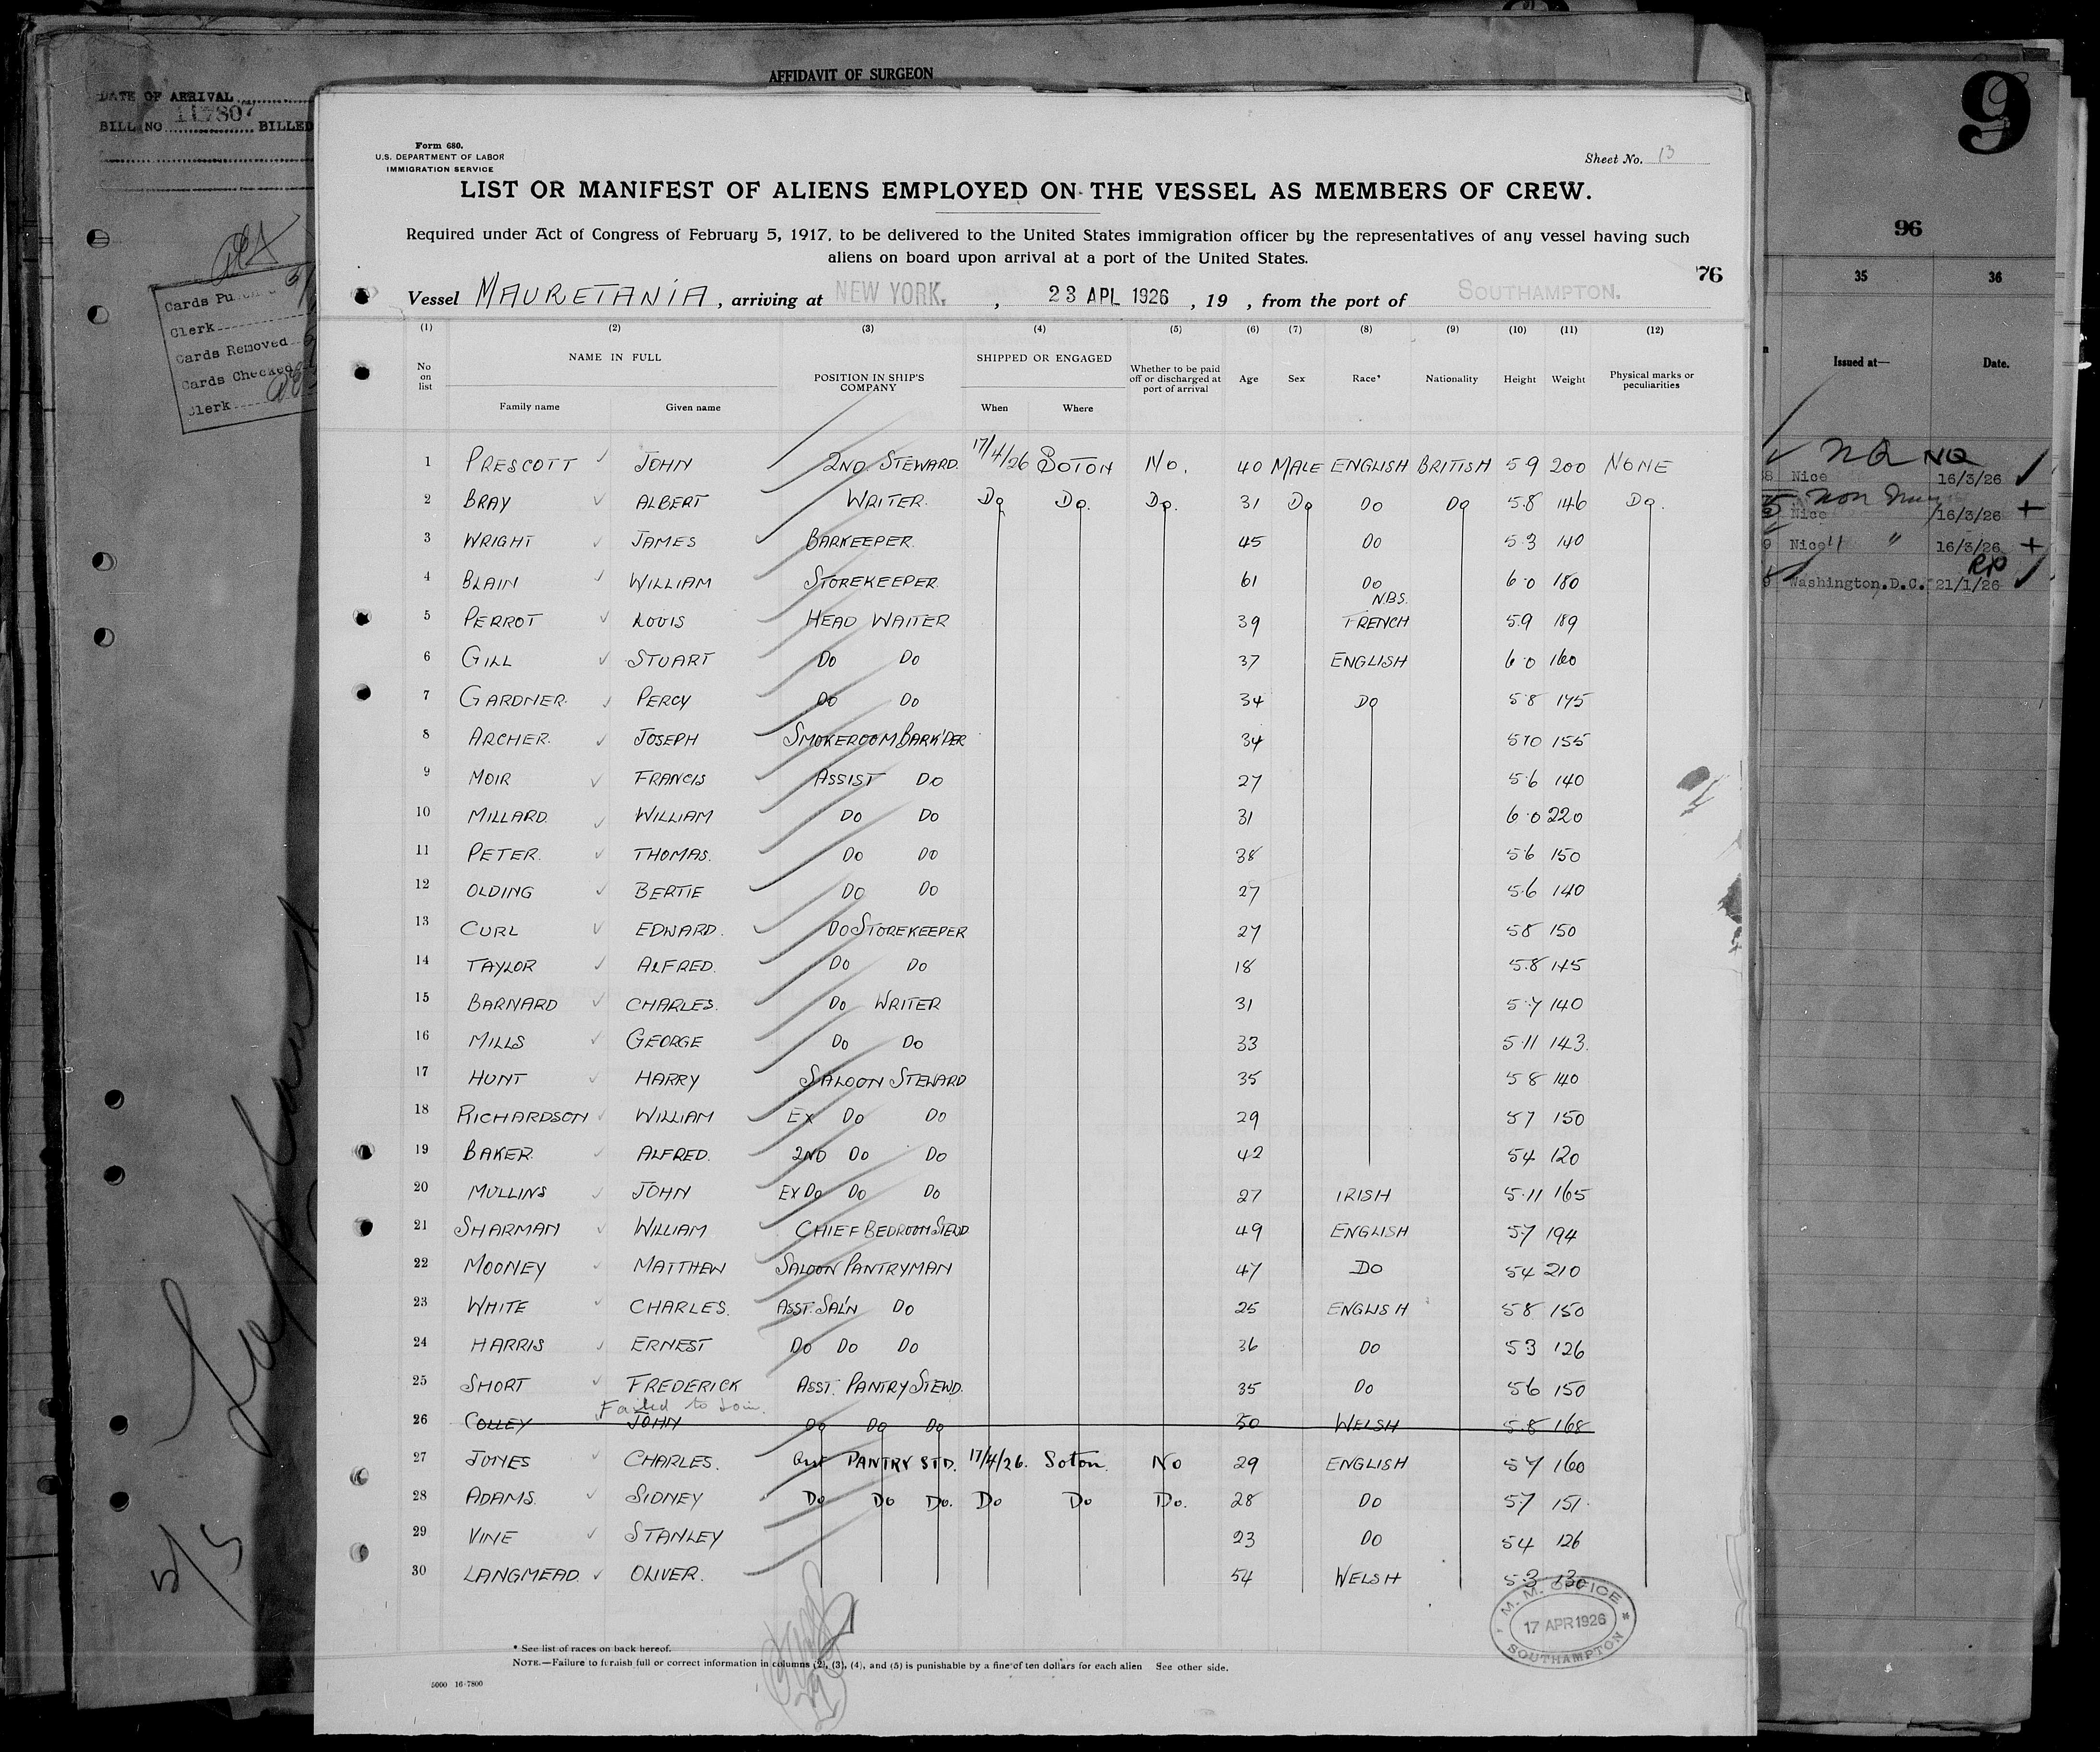 AFFIDAVIT OF SURGEON
DATE OF ARRIVAL
BILL NO 117807 BILLED
Cards
Clerk
Cards Removed
Cards Checked
Clerk
5/5
9
96
35 36
Issued at— Date.
NQ NQ
Nice 16/3/26
non
Nice 16/3/26 +
Nice " " 16/3/26 +
RP
Washington.D.C. 21/1/26
Form 680.
U.S. DEPARTMENT OF LABOR
IMMIGRATION SERVICE
Sheet No. 13
LIST OR MANIFEST OF ALIENS EMPLOYED ON THE VESSEL AS MEMBERS OF CREW.
Required under Act of Congress of February 5, 1917, to be delivered to the United States immigration officer by the representatives of any vessel having such
aliens on board upon arrival at a port of the United States.
76
Vessel MAURETANIA, arriving at NEW YORK. , 23 APL 1926 , 19 , from the port of SOUTHAMPTON.
(1) (2) (3) (4) (5) (6) (7) (8) (9) (10) (11) (12)
No on list NAME IN FULL POSITION IN SHIP'S COMPANY SHIPPED OR ENGAGED Whether to be paid off or discharged at port of arrival Age Sex Race* Nationality Height Weight Physical marks or peculiarities
Family name Given name When Where
1 PRESCOTT JOHN 2ND STEWARD. 17/4/26 SOTON No. 40 MALE ENGLISH BRITISH 5 9 200 NONE
2 BRAY ALBERT WRITER. Do Do. Do. 31 Do Do Do 5.8 146 Do.
3 WRIGHT JAMES BARKEEPER. 45 Do 5.3 140
4 BLAIN WILLIAM STOREKEEPER. 61 Do 6.0 180
N.B.S.
5 PERROT LOUIS HEAD WAITER 39 FRENCH 5.9 189
6 GILL STUART Do Do 37 ENGLISH 6.0 160
7 GARDNER. PERCY Do Do 34 Do 5 8 175
8 ARCHER. JOSEPH SMOKEROOM BARK'PER 34 5 10 155
9 MOIR FRANCIS ASSIST Do 27 5.6 140
10 MILLARD WILLIAM Do Do 31 6.0 220
11 PETER. THOMAS. Do Do 38 5 6 150
12 OLDING BERTIE Do Do 27 5.6 140
13 CURL EDWARD. Do STOREKEEPER 27 5 8 150
14 TAYLOR ALFRED. Do Do 18 5.8 145
15 BARNARD CHARLES. Do WRITER 31 5.7 140
16 MILLS GEORGE Do Do 33 5.11 143.
17 HUNT HARRY SALOON STEWARD 35 5 8 140
18 RICHARDSON WILLIAM EX Do Do 29 5 7 150
19 BAKER. ALFRED. 2ND Do Do 42 5 4 120
20 MULLINS JOHN EX Do Do Do 27 IRISH 5.11 165
21 SHARMAN WILLIAM CHIEF BEDROOM STEWD 49 ENGLISH 5.7 194
22 MOONEY MATTHEW SALOON PANTRYMAN 47 Do 5 4 210
23 WHITE CHARLES. ASST. SAL'N Do 25 ENGLISH 5 8 150
24 HARRIS ERNEST Do Do Do 36 Do 5 3 126
25 SHORT FREDERICK ASST. PANTRY STEWD. 35 Do 5 6 150
Failed to Join.
26 COLLEY JOHN Do Do Do 50 WELSH 5.8 168
27 JONES CHARLES. PANTRY STD. 17/4/26. Soton. No 29 ENGLISH 5 7 160
28 ADAMS. SIDNEY Do Do Do. Do Do Do. 28 Do 5.7 151.
29 VINE STANLEY 23 Do 5 4 126
30 LANGMEAD. OLIVER. 54 WELSH 5.3 130
M. M. OFFICE
17 APR 1926
SOUTHAMPTON
* See list of races on back hereof.
NOTE.—Failure to furnish full or correct information in columns (2), (3), (4), and (5) is punishable by a fine of ten dollars for each alien See other side.
5000 16-7800